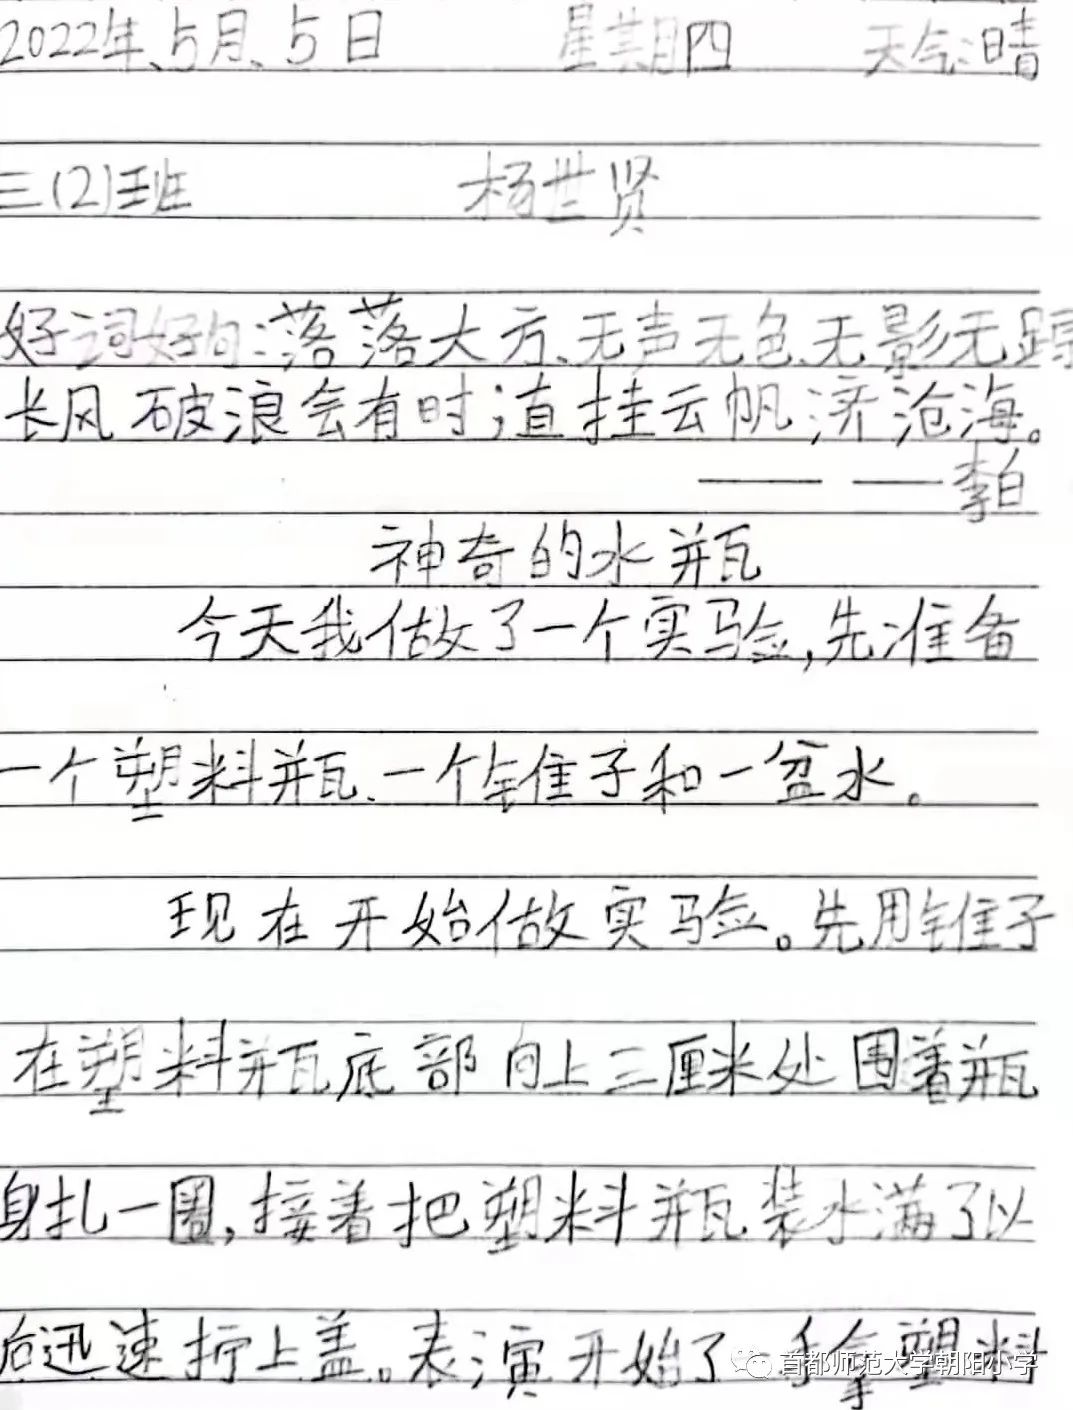 2022年、5月、5日 星期四 天气:晴
三(2)班 杨世贤
好词好句:落落大方、无声无色、无影无踪
长风破浪会有时;直挂云帆济沧海。
—— ——李白
神奇的水瓶
今天我做了一个实验,先准备
一个塑料瓶、一个锥子和一盆水。
现在开始做实验。先用锥子
在塑料瓶底部向上三厘米处围着瓶
身扎一圈,接着把塑料瓶装水满了以
后迅速拧上盖。表演开始了 手拿塑料
首都师范大学朝阳小学